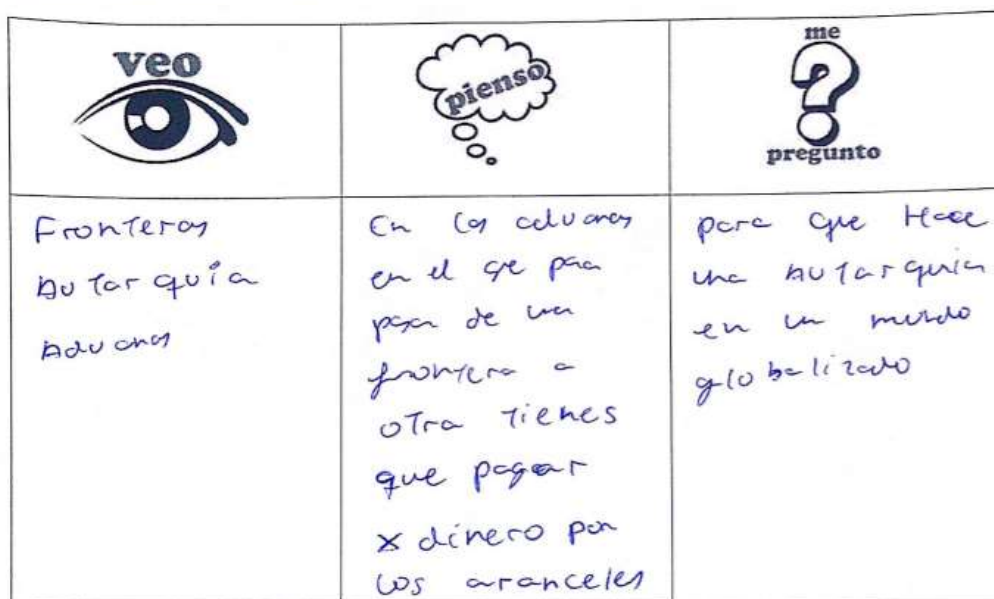 veo
pienso
me
pregunto
Fronteras
Autarquía
Aduanas
En las aduanas
en el que para
pasar de una
frontera a
otra tienes
que pagar
x dinero por
los aranceles
para que Hace
una Autarquia
en un mundo
globalizado